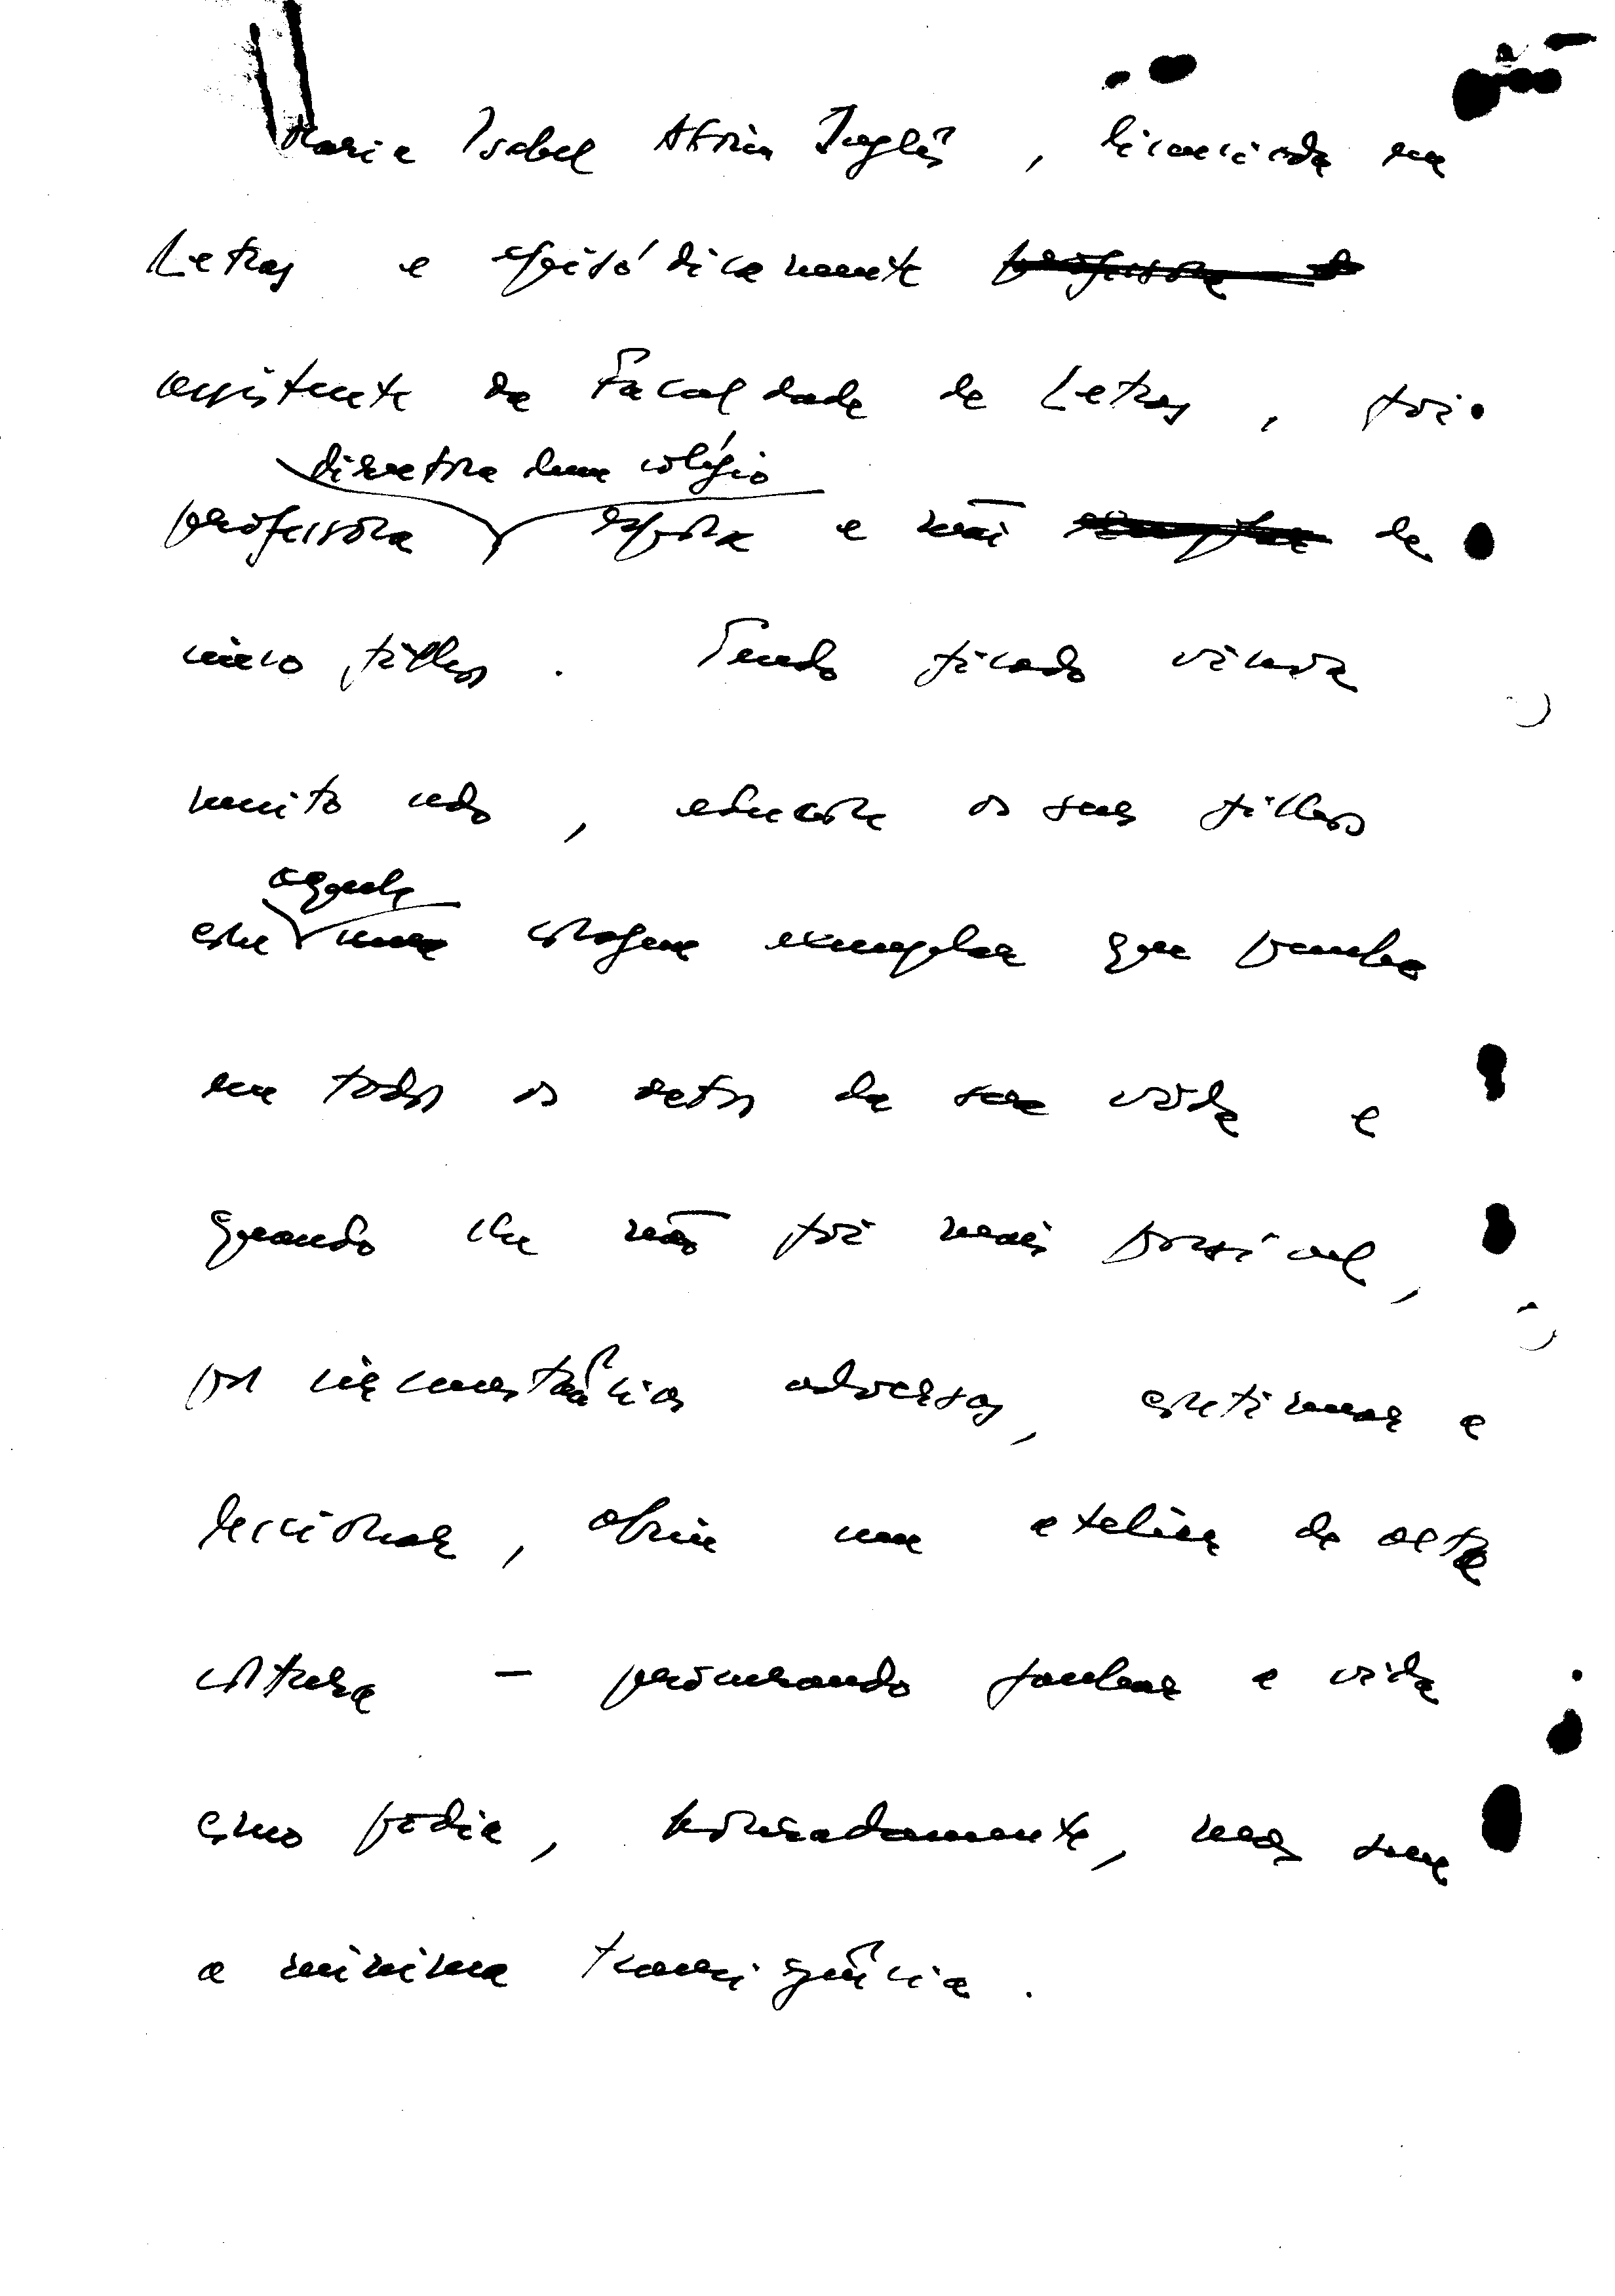 Maria Isabel Aboim Inglês, licenciada em
Letras e episódicamente professora de
assistente da Faculdade de Letras, foi
directora dum colégio
professora esposa e mãi exemplar de
cinco filhos. Tendo ficado viuva
muito cedo, educou os seus filhos
aquela
com uma coragem exemplar que punha
em todos os actos da sua vida e
quando lhe não foi mais possível,
por circunstâncias adversas, continuar a
leccionar, abriu um atelier de alta
costura — procurando ganhar a vida
como podia, honradamente, mas sem
a minima transigência.